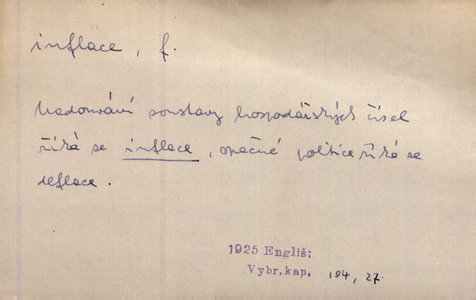 inflace, f.
Nadouvání soustavy hospodářských čísel
říká se inflace, opačné politice říká se
deflace.
1925 Engliš:
Vybr.kap. 104, 27.